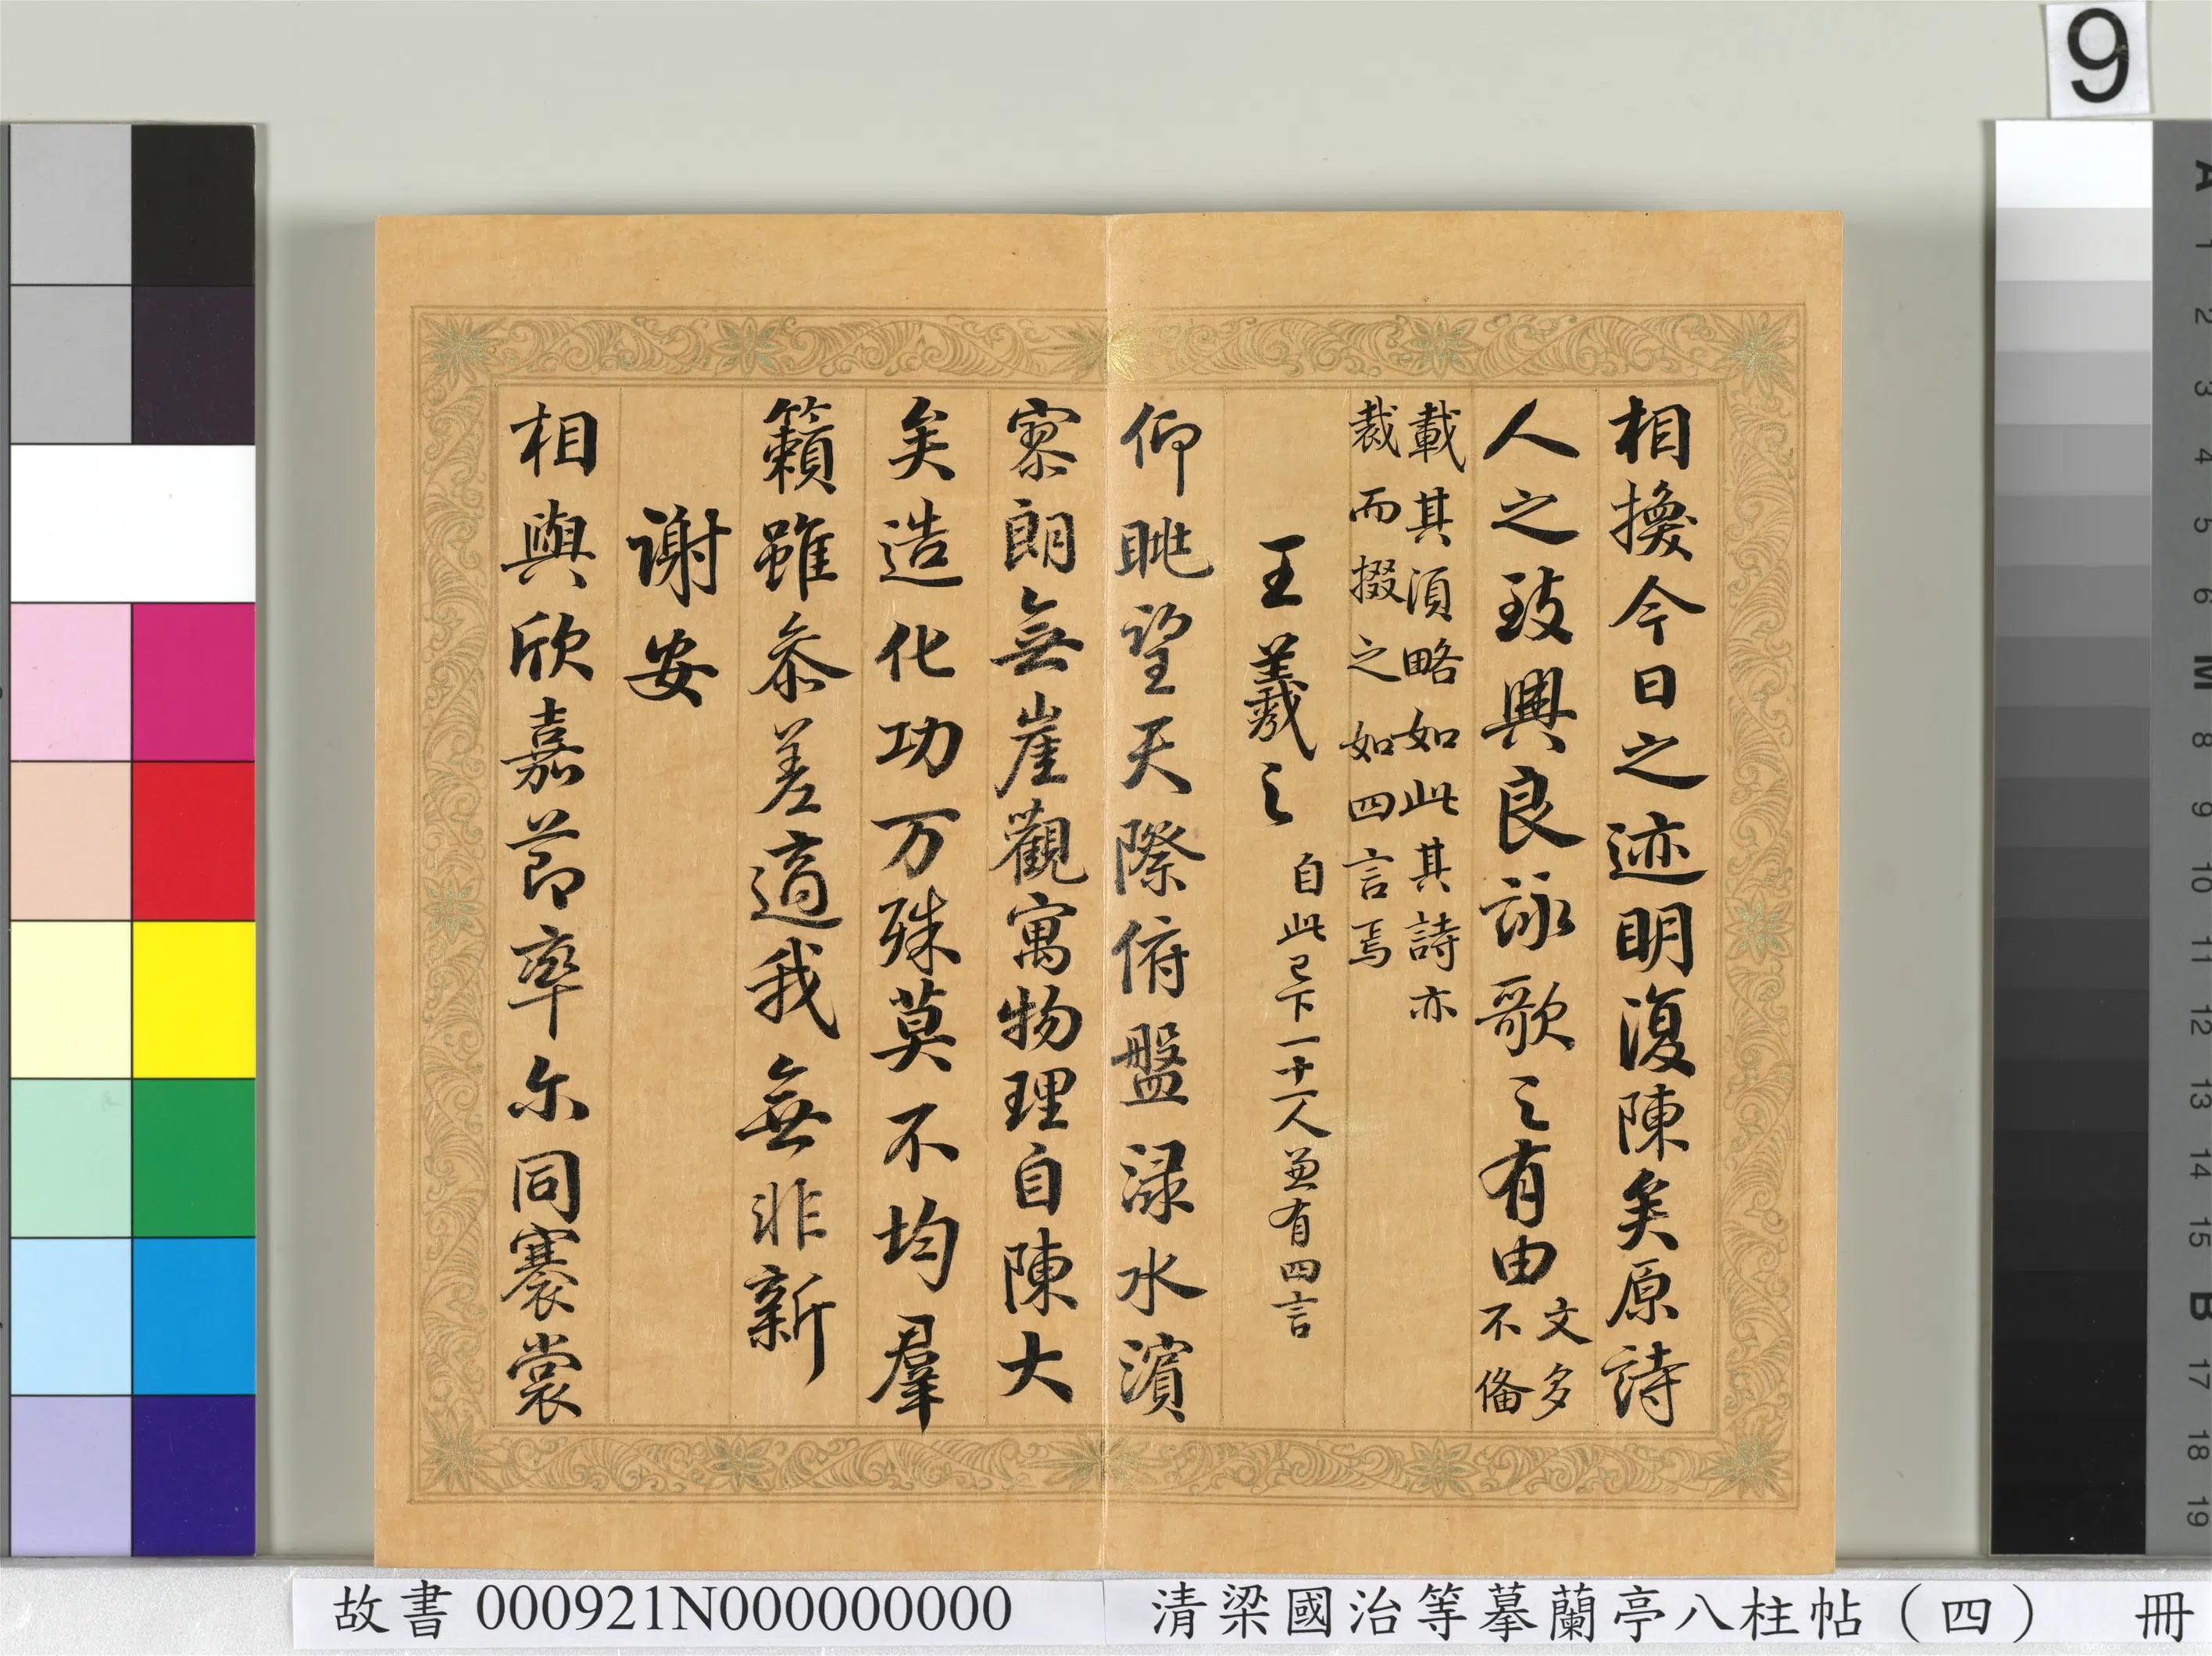 9
相換今日之迹明復陳矣原詩
人之致興良詠歌之有由文多不俻
載其湏略如此其詩亦
裁而掇之如四言焉
王羲之自此已下一十一人兼有四言
仰眺望天際俯盤渌水濱
寥朗無崖觀寓物理自陳大
矣造化功万殊莫不均羣
籟雖叅差適我無非新
謝安
相與欣嘉節率尓同褰裳
故書 000921N000000000
清梁國治等摹蘭亭八柱帖（四） 冊
A
1
2
3
4
5
6
M
8
9
10
11
12
13
14
15
B
17
18
19